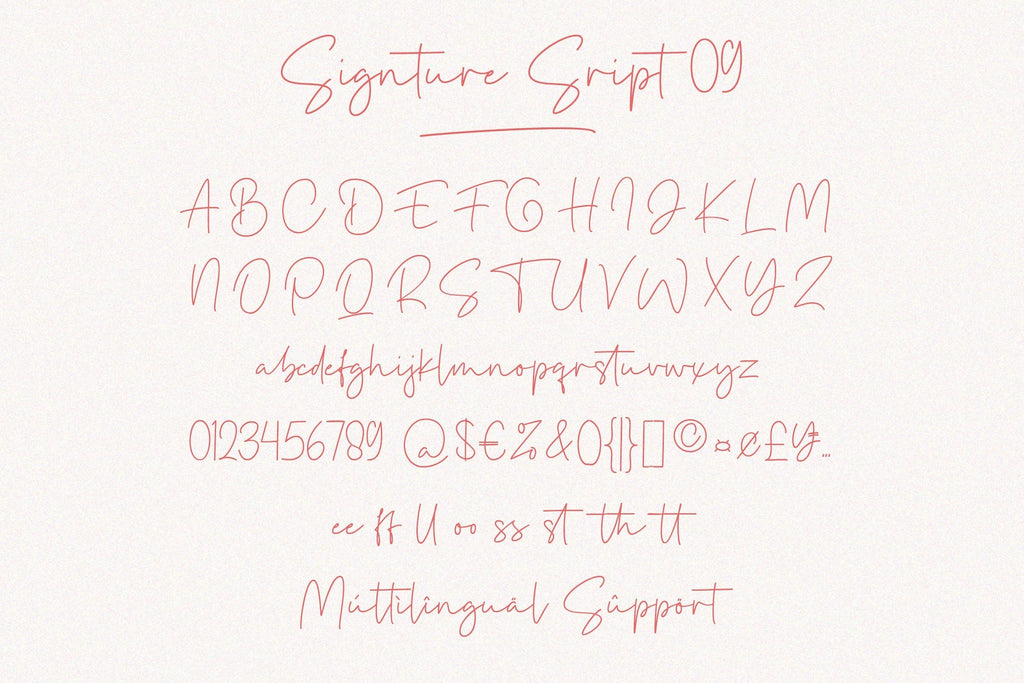 Signture Sript 09
ABCDEFGHIJKLM
NOPQRSTUVWXYZ
abcdefghijklmnopqrstuvwxyz
0123456789 @$€%&(){|}[]©¤¢£¥...
ee ff ll oo ss st th tt
Múttìlînguäl Sûppört